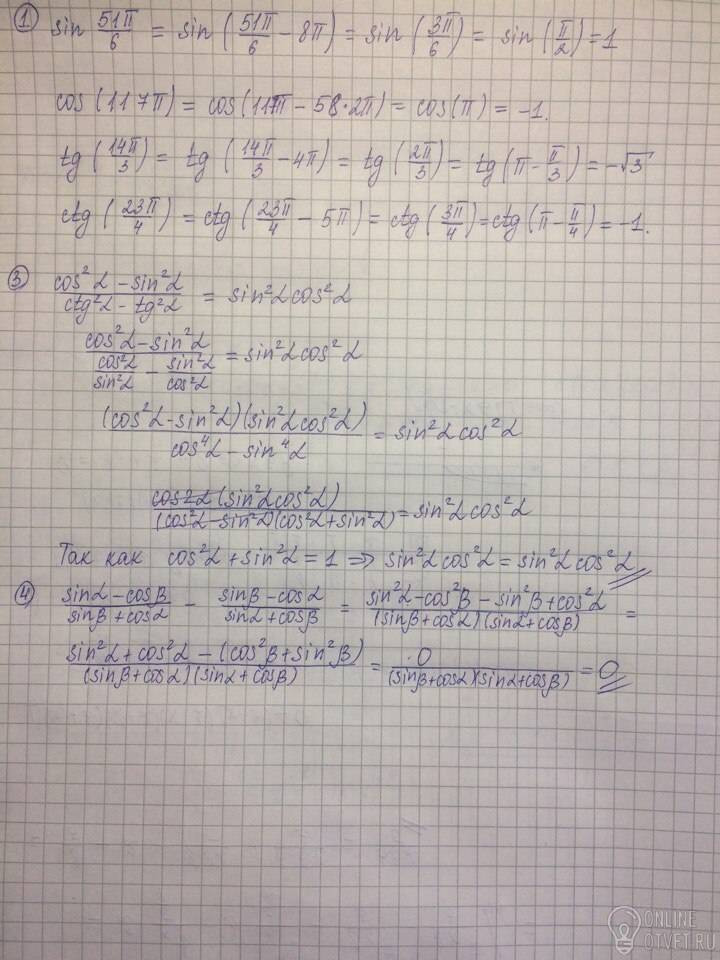 ① sin 51π/6 = sin (51π/6 − 8π) = sin (3π/6) = sin (π/2) = 1
cos (117π) = cos(117π − 58·2π) = cos(π) = −1.
tg (14π/3) = tg (14π/3 − 4π) = tg (2π/3) = tg (π − π/3) = −√3
ctg (23π/4) = ctg (23π/4 − 5π) = ctg (3π/4) = ctg (π − π/4) = −1.
③ (cos²α − sin²α)/(ctg²α − tg²α) = sin²α cos²α
(cos²α − sin²α)/(cos²α/sin²α − sin²α/cos²α) = sin²α cos²α
(cos²α − sin²α)(sin²α cos²α)/(cos⁴α − sin⁴α) = sin²α cos²α
cos2α (sin²α cos²α)/((cos²α − sin²α)(cos²α + sin²α)) = sin²α cos²α
Так как cos²α + sin²α = 1 ⇒ sin²α cos²α = sin²α cos²α
④ (sinα − cosβ)/(sinβ + cosα) − (sinβ − cosα)/(sinα + cosβ) = (sin²α − cos²β − sin²β + cos²α)/((sinβ + cosα)(sinα + cosβ)) =
(sin²α + cos²α − (cos²β + sin²β))/((sinβ + cosα)(sinα + cosβ)) = 0/((sinβ + cosα)(sinα + cosβ)) = 0
ONLINE
OTVET.RU